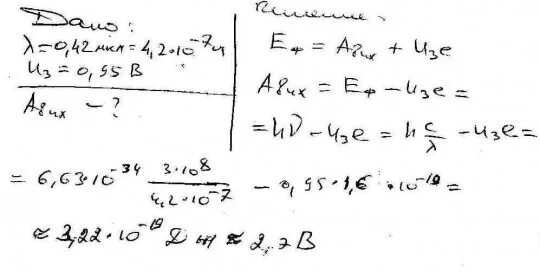 Дано:
λ=0,42 мкм=4,2·10⁻⁷м
Uз = 0,95 В
Aвых – ?
Решение:
Eф = Aвых + Uзe
Aвых = Eф – Uзe =
= hν – Uзe = h c/λ – Uзe =
= 6,63·10⁻³⁴ 3·10⁸/4,2·10⁻⁷ – 0,95·1,6·10⁻¹⁹ =
≈ 3,22·10⁻¹⁹ Дж ≈ 2,7В